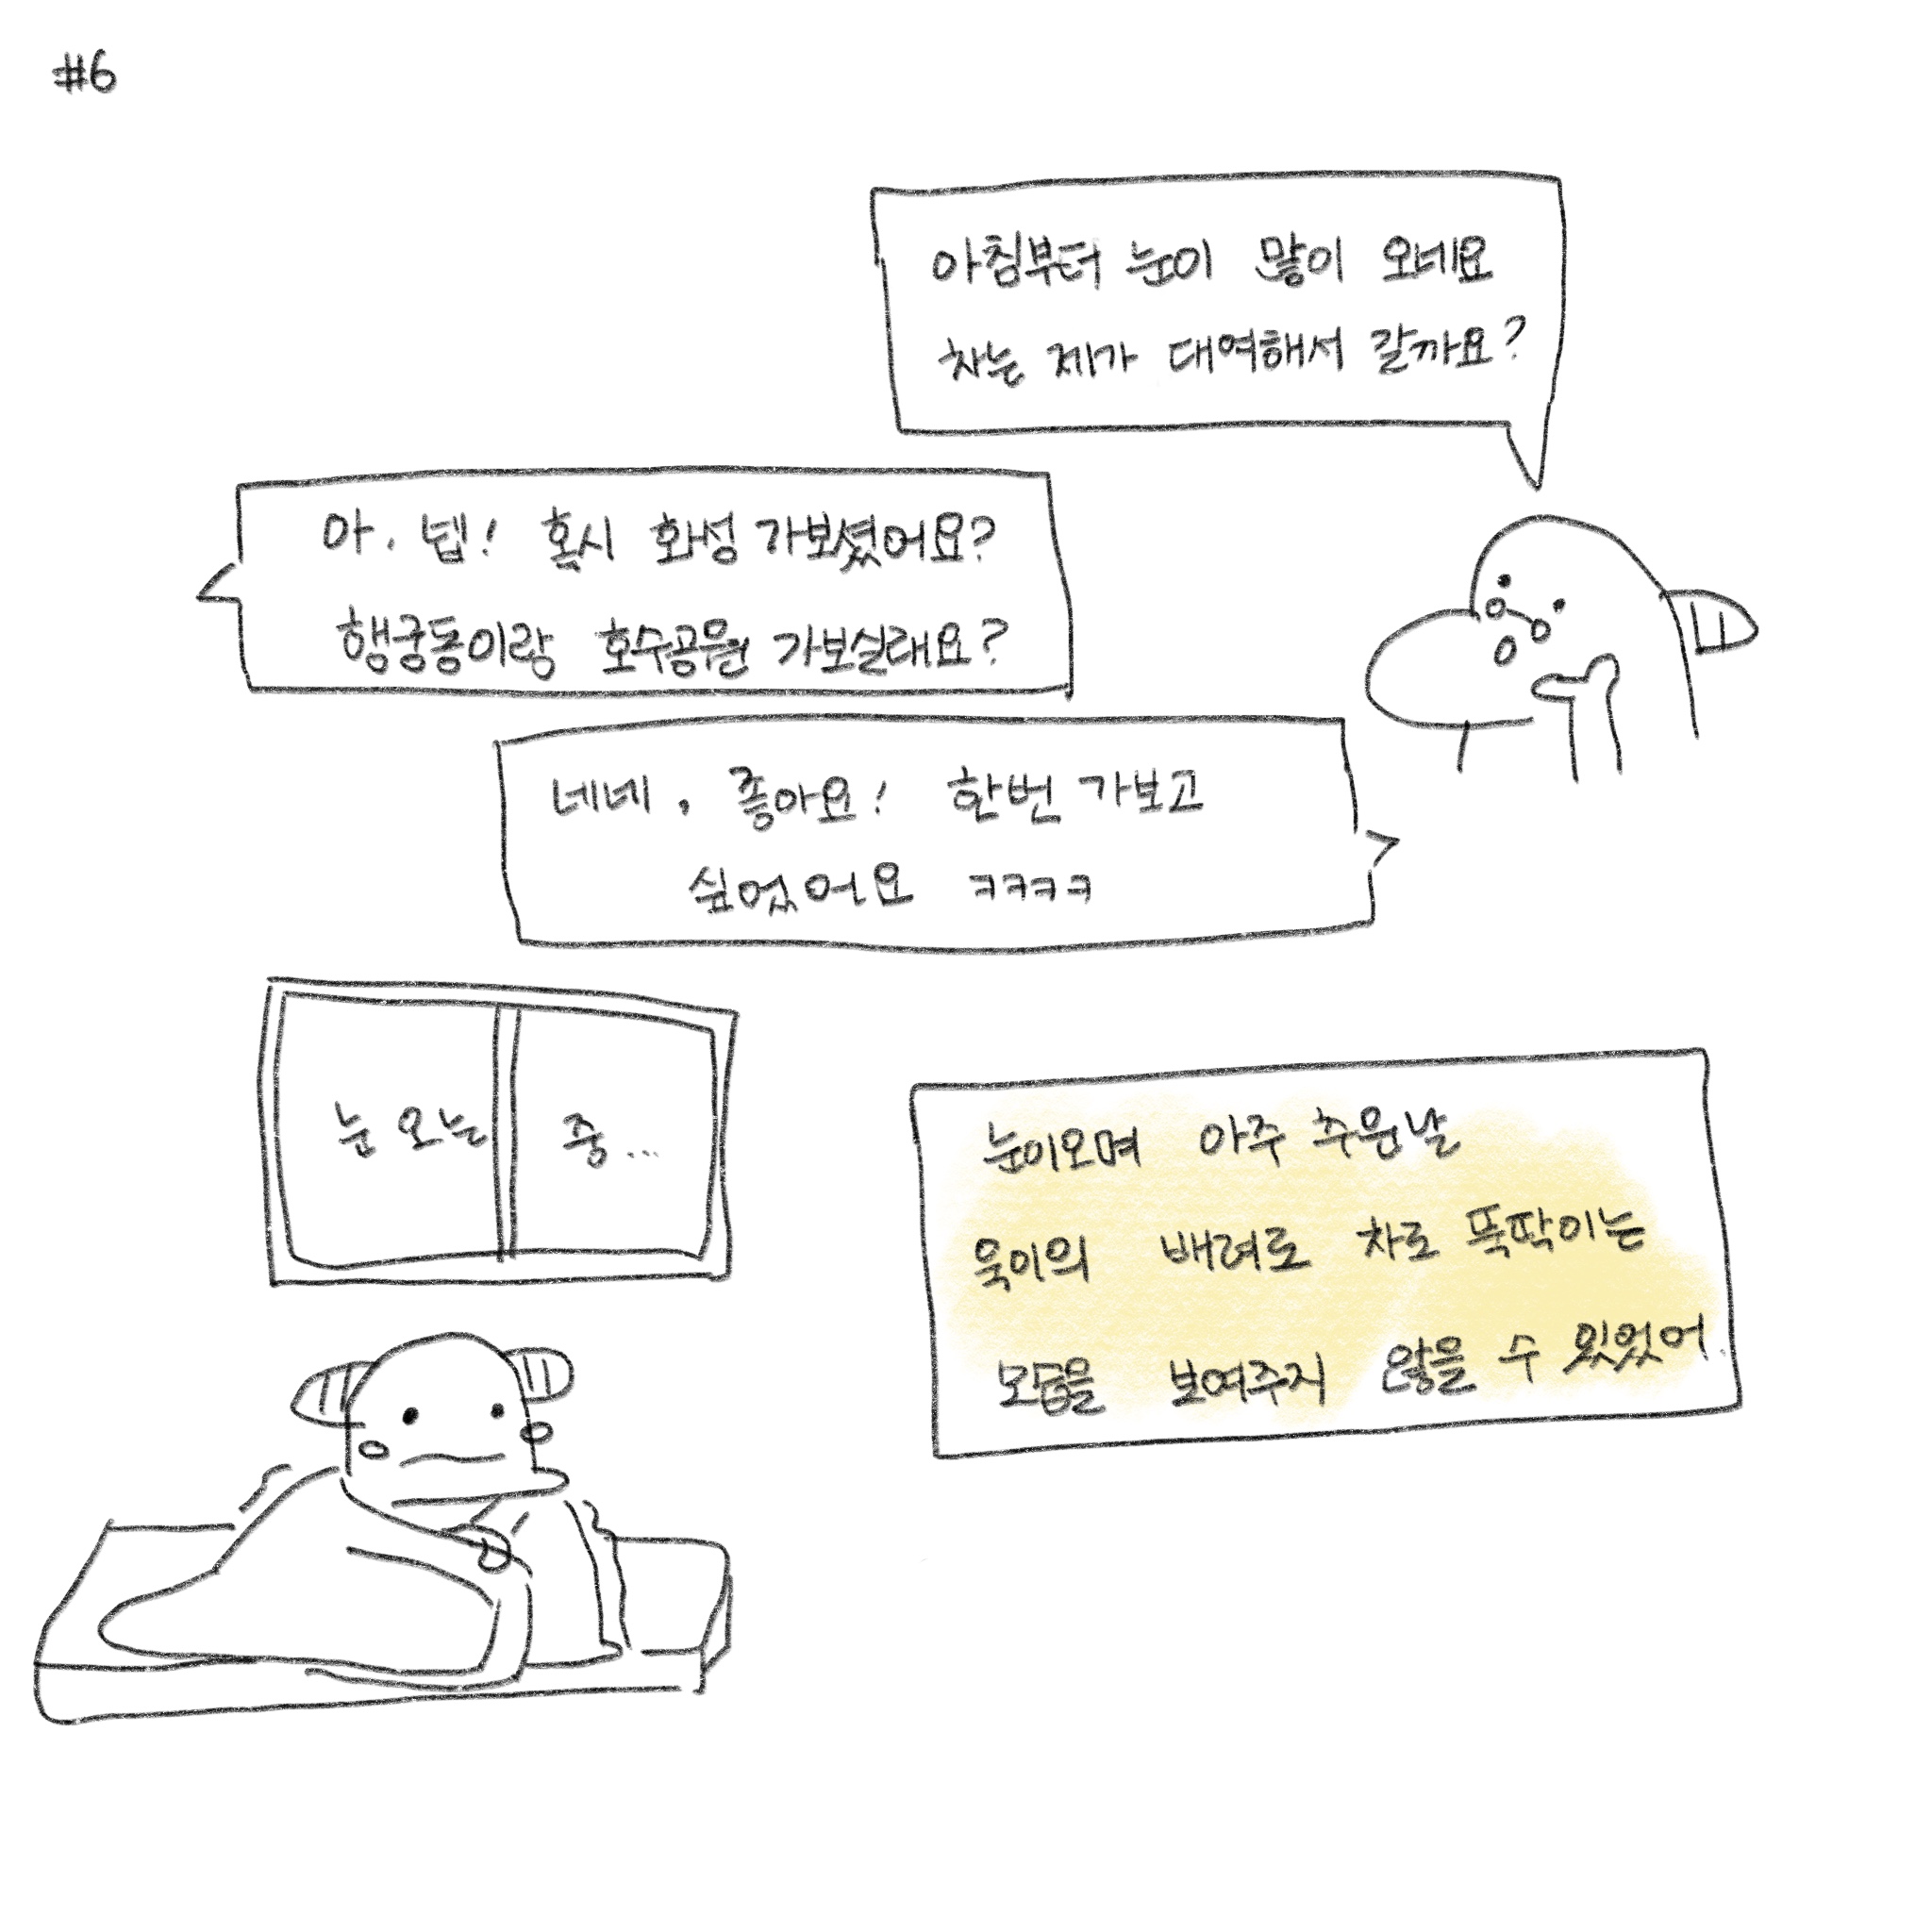 #6
아침부터 눈이 많이 오네요
차는 제가 대여해서 갈까요?
아. 넵! 혹시 화성 가보셨어요?
행궁동이랑 호수공원 가보실래요?
네네, 좋아요! 한번 가보고
싶었어요 ㅋㅋㅋㅋ
눈 오는 중...
눈이오며 아주 추운날
욱이의 배려로 차로 뚝딱이는
모습을 보여주지 않을 수 있었어.